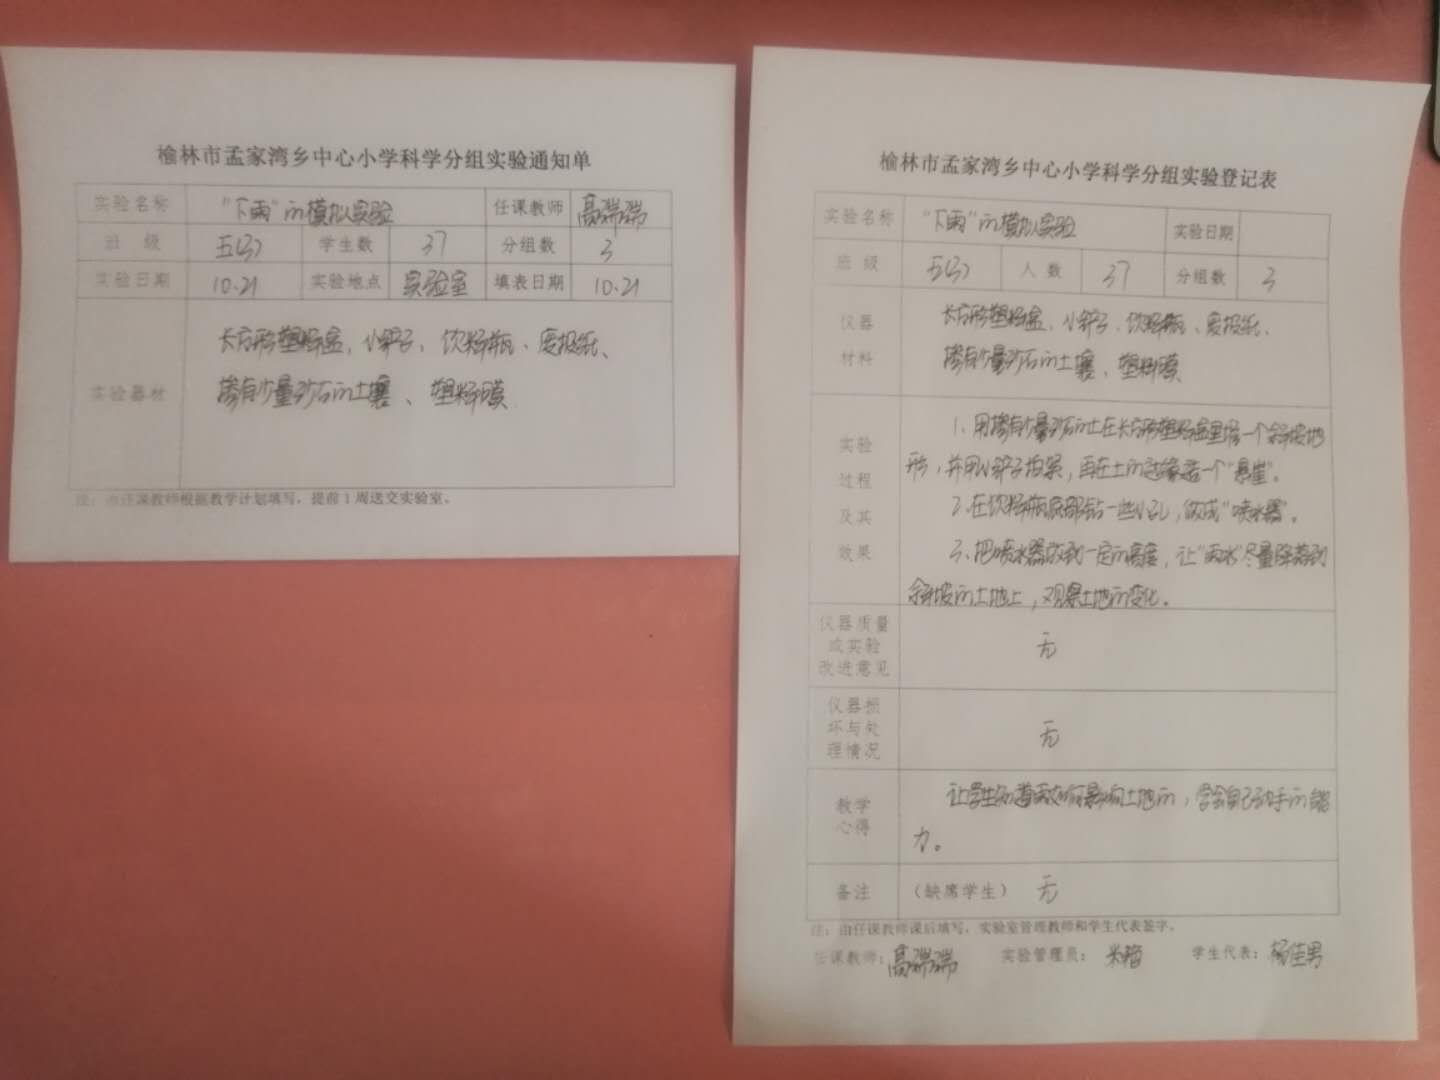 榆林市孟家湾乡中心小学科学分组实验通知单
实验名称 "下雨"的模拟实验 任课教师 高瑞瑞
班 级 五(3) 学生数 37 分组数 3
实验日期 10.21 实验地点 实验室 填表日期 10.21
实验器材
长方形塑料盒、小铲子、饮料瓶、废报纸、
掺有少量沙石的土壤、塑料膜
注:由任课教师根据教学计划填写,提前1周送交实验室。
榆林市孟家湾乡中心小学科学分组实验登记表
实验名称 "下雨"的模拟实验 实验日期
班 级 五(3) 人 数 37 分组数 3
仪器
材料
长方形塑料盒、小铲子、饮料瓶、废报纸、
掺有少量沙石的土壤、塑料膜
实验
过程
及其
效果
1、用掺有少量沙石的土在长方形塑料盒里堆一个斜坡地
形,并用小铲子拍紧,再在土的边缘造一个"悬崖"。
2、在饮料瓶底部钻一些小孔,做成"喷水器"。
3、把喷水器放到一定的高度,让"雨水"尽量降落到
斜坡的土地上,观察土地的变化。
仪器质量
或实验
改进意见
无
仪器损
坏与处
理情况
无
教学
心得
让学生知道雨如何影响土地的,学会自己动手的能
力。
备注 (缺席学生) 无
注:由任课教师课后填写,实验室管理教师和学生代表签字。
任课教师:高瑞瑞 实验管理员: 学生代表:杨佳男